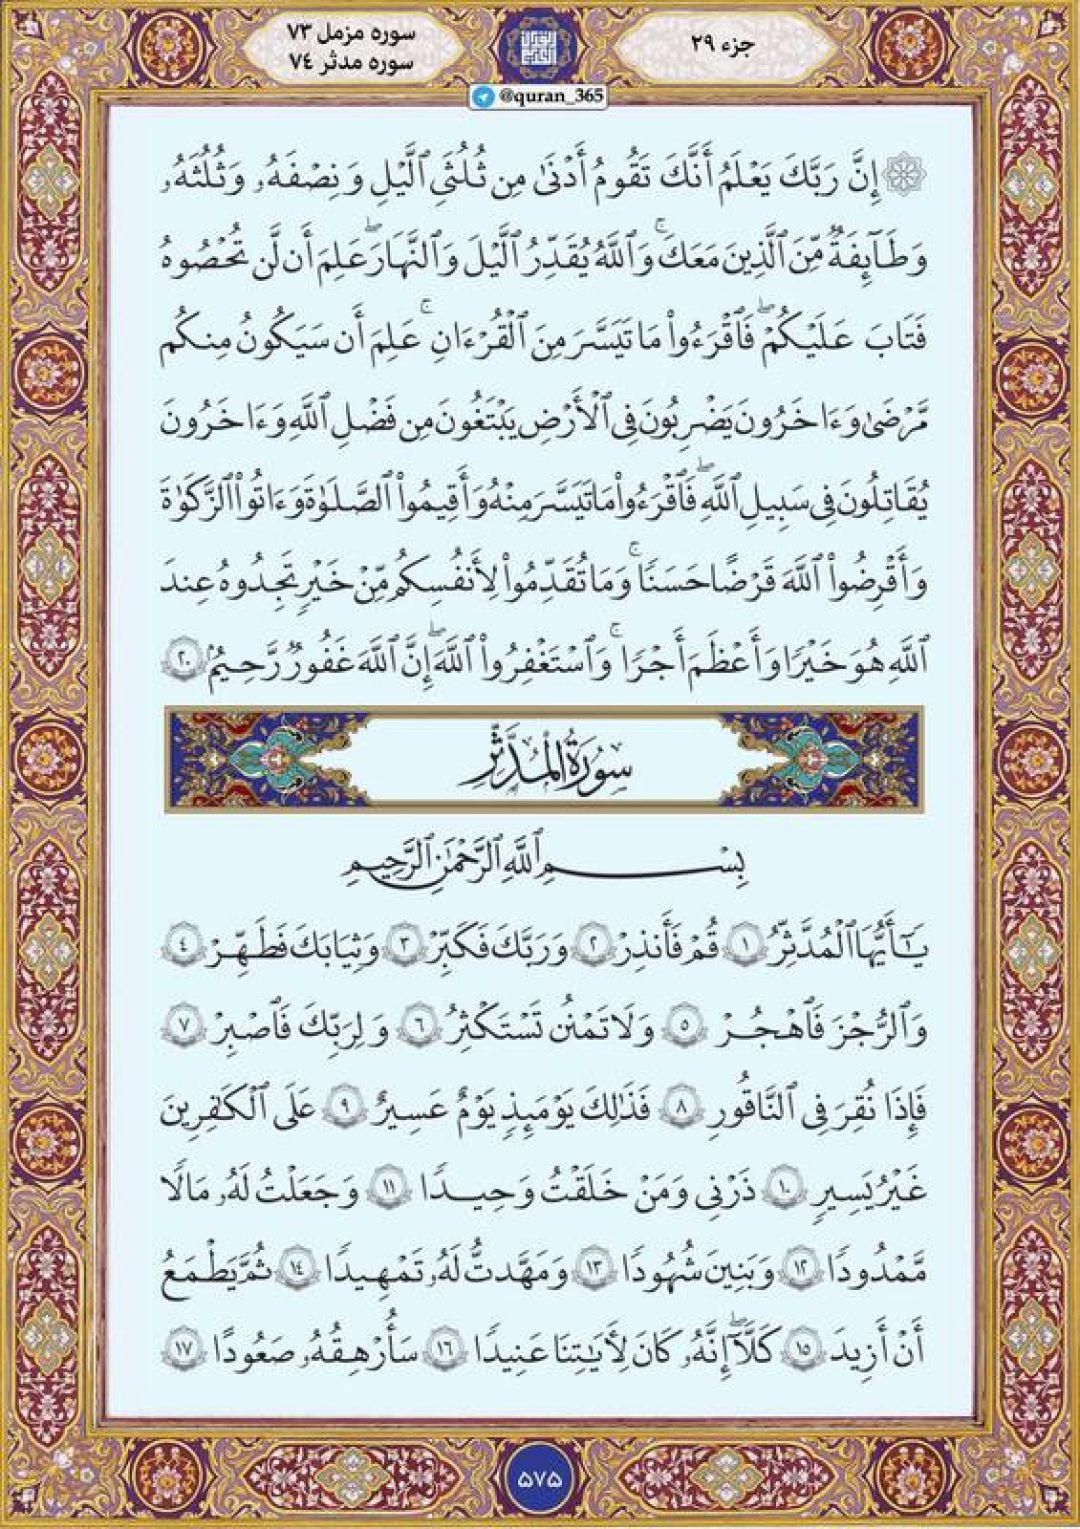 جزء ۲۹
سوره مزمل ۷۳
سوره مدثر ۷٤
@quran_365
۞ إِنَّ رَبَّكَ يَعْلَمُ أَنَّكَ تَقُومُ أَدْنَىٰ مِن ثُلُثَىِ ٱلَّيْلِ وَنِصْفَهُۥ وَثُلُثَهُۥ
وَطَآئِفَةٌ مِّنَ ٱلَّذِينَ مَعَكَۚ وَٱللَّهُ يُقَدِّرُ ٱلَّيْلَ وَٱلنَّهَارَۖ عَلِمَ أَن لَّن تُحْصُوهُ
فَتَابَ عَلَيْكُمْۖ فَٱقْرَءُوا۟ مَا تَيَسَّرَ مِنَ ٱلْقُرْءَانِۚ عَلِمَ أَن سَيَكُونُ مِنكُم
مَّرْضَىٰ وَءَاخَرُونَ يَضْرِبُونَ فِى ٱلْأَرْضِ يَبْتَغُونَ مِن فَضْلِ ٱللَّهِ وَءَاخَرُونَ
يُقَاتِلُونَ فِى سَبِيلِ ٱللَّهِۖ فَٱقْرَءُوا۟ مَا تَيَسَّرَ مِنْهُ وَأَقِيمُوا۟ ٱلصَّلَوٰةَ وَءَاتُوا۟ ٱلزَّكَوٰةَ
وَأَقْرِضُوا۟ ٱللَّهَ قَرْضًا حَسَنًاۚ وَمَا تُقَدِّمُوا۟ لِأَنفُسِكُم مِّنْ خَيْرٍ تَجِدُوهُ عِندَ
ٱللَّهِ هُوَ خَيْرًا وَأَعْظَمَ أَجْرًاۚ وَٱسْتَغْفِرُوا۟ ٱللَّهَۖ إِنَّ ٱللَّهَ غَفُورٌ رَّحِيمٌ ٢٠
سُورَةُ الْمُدَّثِّرِ
بِسْمِ ٱللَّهِ ٱلرَّحْمَٰنِ ٱلرَّحِيمِ
يَٰٓأَيُّهَا ٱلْمُدَّثِّرُ ١ قُمْ فَأَنذِرْ ٢ وَرَبَّكَ فَكَبِّرْ ٣ وَثِيَابَكَ فَطَهِّرْ ٤
وَٱلرُّجْزَ فَٱهْجُرْ ٥ وَلَا تَمْنُن تَسْتَكْثِرُ ٦ وَلِرَبِّكَ فَٱصْبِرْ ٧
فَإِذَا نُقِرَ فِى ٱلنَّاقُورِ ٨ فَذَٰلِكَ يَوْمَئِذٍ يَوْمٌ عَسِيرٌ ٩ عَلَى ٱلْكَٰفِرِينَ
غَيْرُ يَسِيرٍ ١٠ ذَرْنِى وَمَنْ خَلَقْتُ وَحِيدًا ١١ وَجَعَلْتُ لَهُۥ مَالًا
مَّمْدُودًا ١٢ وَبَنِينَ شُهُودًا ١٣ وَمَهَّدتُّ لَهُۥ تَمْهِيدًا ١٤ ثُمَّ يَطْمَعُ
أَنْ أَزِيدَ ١٥ كَلَّآۖ إِنَّهُۥ كَانَ لِـَٔايَٰتِنَا عَنِيدًا ١٦ سَأُرْهِقُهُۥ صَعُودًا ١٧
۵۷۵